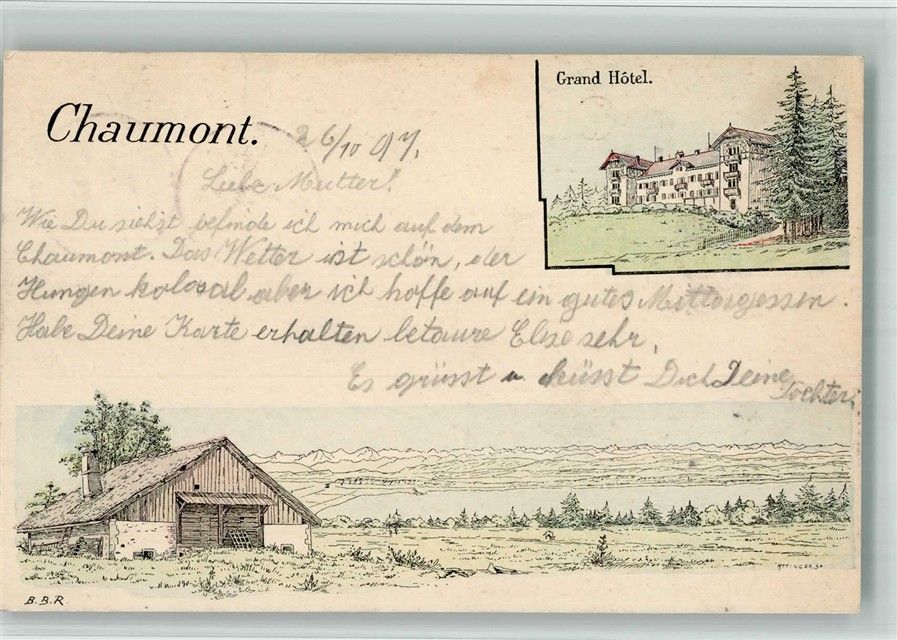 Grand Hôtel.
Chaumont.
26/10 97.
Liebe Mutter!
Wie Du siehst befinde ich mich auf dem
Chaumont. Das Wetter ist schön, der
Hungen kolosal aber ich hoffe auf ein gutes Mittagessen.
Habe Deine Karte erhalten betaure Elise sehr,
Es grüsst u. küsst Dich Deine
Tochter.
ATTINGER SC
B.B.R